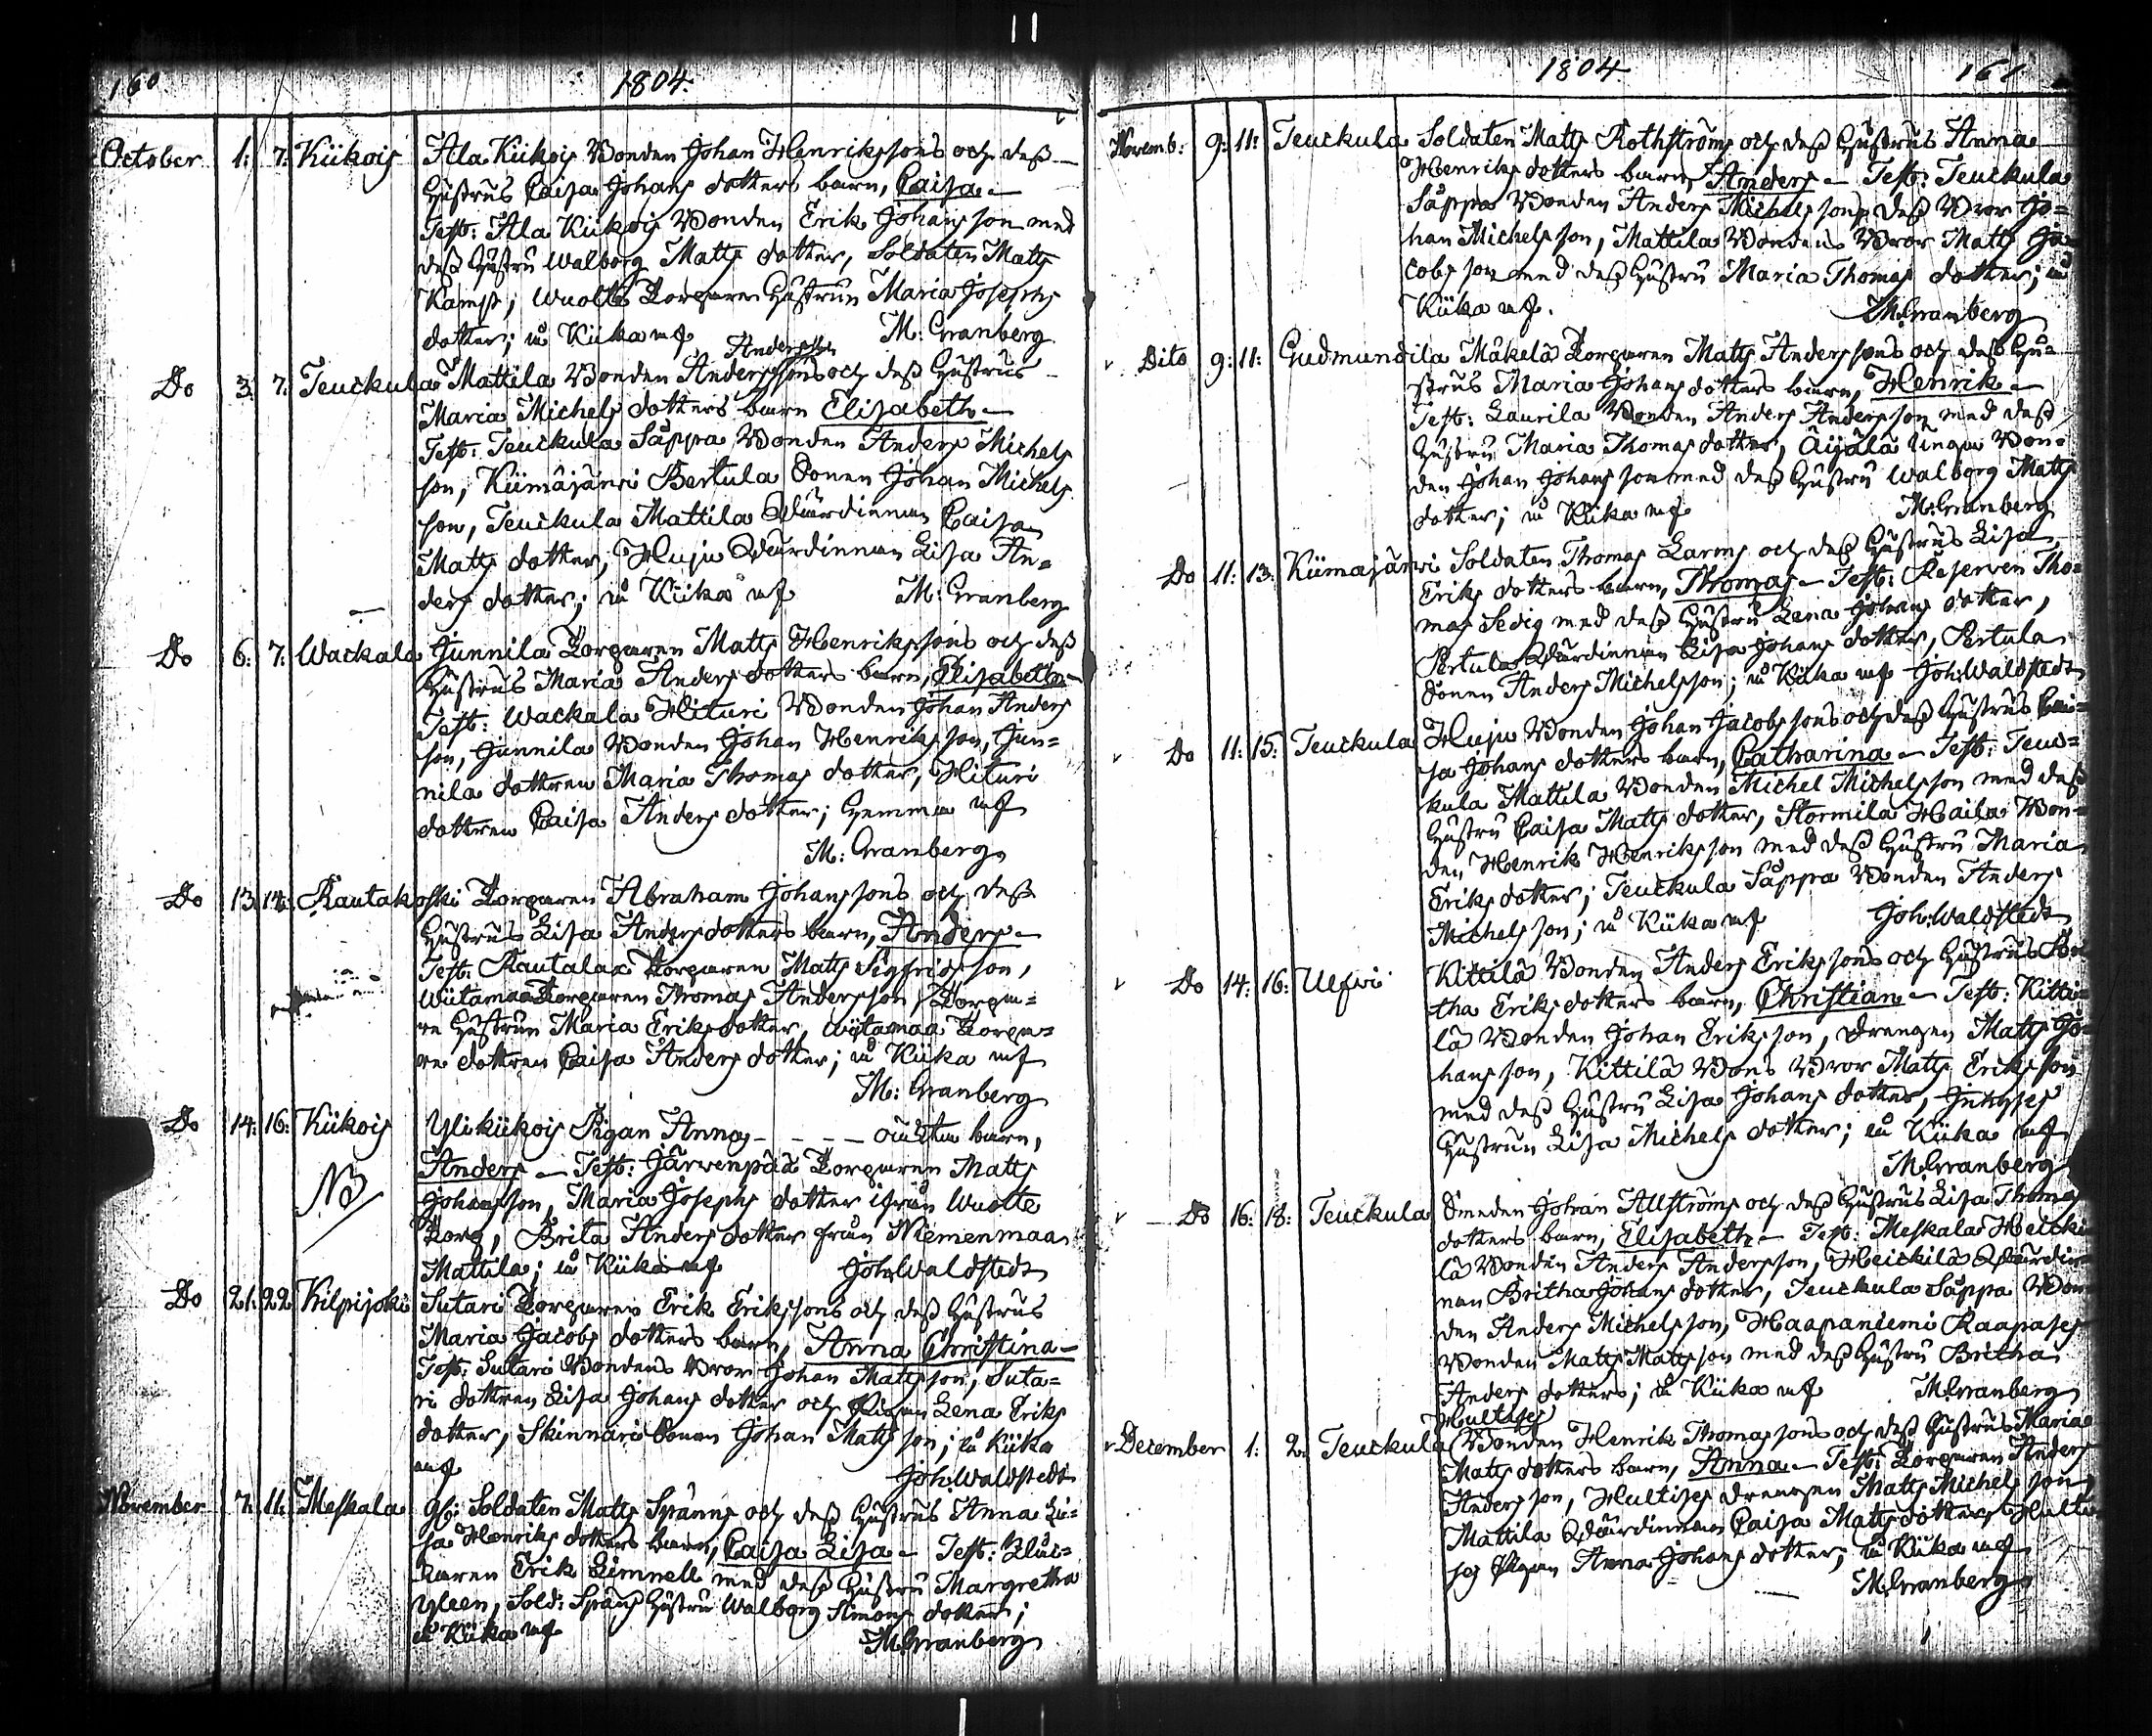 160 1804.
October 1: 7: Kiikois Ala Kiikois Bonden Johan Henrikssons och dess
Hustrus Caisa Johans dotters barn, Caisa
Test: Ala Kiikois Bonden Erik Johans son med
dess Hustru Walborg Matts dotter, Soldaten Matts
Kamp, Wuolte Torpare Hustrun Maria Josephs
dotter; uti Kiika af M: Granberg
Andersson
Do 3: 7: Teuckula Mattila Bonden Anderssons och dess Hustrus
Maria Michels dotters barn Elisabeth
Test: Teuckula Säppä Bonden Anders Michels
son, Kiimäjärvi Bertula Sonen Johan Michels
son, Teuckula Mattila Värdinnan Caisa
Matts dotter, Huju Värdinnan Lisa An=
ders dotter; uti Kiika af M: Granberg
Do 6: 7: Wackala Junnila Torparen Matts Henrikssons och dess
Hustrus Maria Anders dotters barn, Elisabeth
Test: Wackala Hituri Bonden Johan Anders
son, Junnila Bonden Johan Henriks son, Jun=
nila dottren Maria Thomas dotter, Hituri
dottren Caisa Anders dotter; hemma af
M: Granberg
Do 13: 14: Rautakoski Torparen Abraham Johanssons och dess
Hustrus Lisa Anders dotters barn, Anders
Test: Rautalax Torparen Matts Sigfrids son,
Wiitamaa Torparen Thomas Andersson, Torpa=
re Hustrun Maria Eriks dotter, Wiitamaa Torpa=
re dottren Caisa Anders dotter; uti Kiika af
M: Granberg
Do 14: 16: Kiikois Ylikiikois Pigan Annas - - - - oächta barn,
NB
Anders Test: Järvenpää Torparen Matts
Johansson, Maria Josephs dotter ifrån Wuolte
Torp, Brita Anders dotter från Niemenmaa
Mattila; uti Kiika af Joh: Waldstedt
Do 21: 22 Kilpijoki Sutari Torparen Erik Erikssons och dess Hustrus
Maria Jacobs dotters barn, Anna Christina
Test: Sutari Bondens Bror Johan Matts son, Suta=
ri dottren Lisa Johans dotter och Pigan Lena Eriks
dotter, Skinnari Sonen Johan Matts son; uti Kiika
af Joh: Waldstedt
November 7: 11: Meskala Soldaten Matts Spänns och dess Hustrus Anna Li=
sa Henriks dotters barn, Caisa Lisa Test:
Erik Limnell med dess Hustru Margretha
Yleen, Sold: Spåns Hustru Walborg Simons dotter;
uti Kiika af M: Granberg
1804 161
Novemb: 9: 11: Teuckula Soldaten Matts Rothströms och dess Hustrus Anna
Henriks dotters barn Anders Test: Teuckula
Säppä Bonden Anders Michelsson, dess Bror Jo=
han Michels son, Mattila Bondens Bror Matts Ja=
cobs son med dess Hustru Maria Thomas dotter; uti
Kiika af. M: Granberg
Dito 9: 11: Gudmundila Mäkelä Torparen Matts Anderssons och dess Hu=
strus Maria Johans dotters barn, Henrik
Test: Laurila Bonden Anders Andersson med dess
Hustru Maria Thomas dotter, Äijälä Unga Bon=
den Johan Johans son med dess Hustru Walborg Matts
dotter; uti Kiika af M: Granberg
Do 11: 13: Kiimajärvi Soldaten Thomas Larms och dess Hustrus Lisa
Eriks dotters barn, Thomas Test: Reserven Tho=
mas Sedig med dess Hustru Lena Johans dotter,
Pertula Värdinnan Lisa Johans dotter, Pertula
Sonen Anders Michelsson; uti Kiika af Joh: Waldstedt
Do 11: 15: Teuckula Huju Bonden Johan Jacobssons och dess Hustrus Cai=
sa Johans dotters barn, Catharina Test: Teuc=
kula Mattila Bonden Michel Michelsson med dess
Hustru Caisa Matts dotter, Stormila Haila Bon=
den Henrik Henriksson med dess Hustru Maria
Eriks dotter; Teuckula Säppä Bonden Anders
Michels son; uti Kiika af Joh: Waldstedt
Do 14: 16: Ulfvi Kittilä Bonden Anders Erikssons och Hustrus
tha Eriks dotters barn, Christian Test: Kitti=
lä Bonden Johan Eriksson, Drengen Matts Jo=
hans son, Kittilä Bons Bror Matts Eriks son
med dess Hustru Lisa Johans dotter,
Hustrun Lisa Michels dotter; uti Kiika af
M: Granberg
Do 16: 18: Teuckula Smeden Johan Allströms och dess Hustrus Lisa Thomas
dotters barn, Elisabeth Test: Meskala Heicki
lä Bonden Anders Andersson, Heickilä Värdin
nan Britha Johans dotter, Teuckula Säppä Bon
den Anders Michelsson, Haapaniemi Raapases
Bonden Matts Matts son med dess Hustru Britha
Anders dotter; uti Kiika af M: Granberg
Hultises
December 1: 2: Teuckula Bonden Henrik Thomassons och dess Hustrus Maria
Matts dotters barn, Anna Test: Torparen Anders
Anders son, Hultises Drengen Matts Michels son,
Mattila Värdinnan Caisa Matts dotter, Hulti
ses Pigan Anna Johans dotter; uti Kiika af
M: Granberg